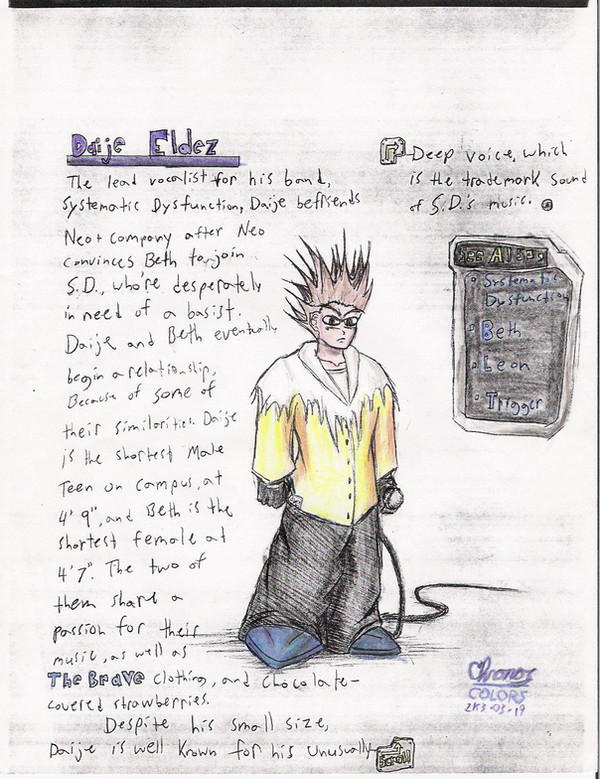 Daije Eldez
The lead vocalist for his band,
Systematic Dysfunction, Daije befriends
Neo + company after Neo
convinces Beth to join
S.D., who're desperately
in need of a basist.
Daije and Beth eventually
begin a relationship,
Because of some of
their similarities. Daije
is the shortest Male
Teen on campus, at
4' 9", and Beth is the
shortest female at
4' 7". The two of
them share a
passion for their
music, as well as
The Brave clothing, and chocolate-
covered strawberries.
Despite his small size,
Daije is well known for his unusually
Scroll
Deep voice, which
is the trademark sound
of S.D.'s music.
See Also:
Systematic
Dysfunction
Beth
Leon
Trigger
Chronos
COLORS
2K3-03-19